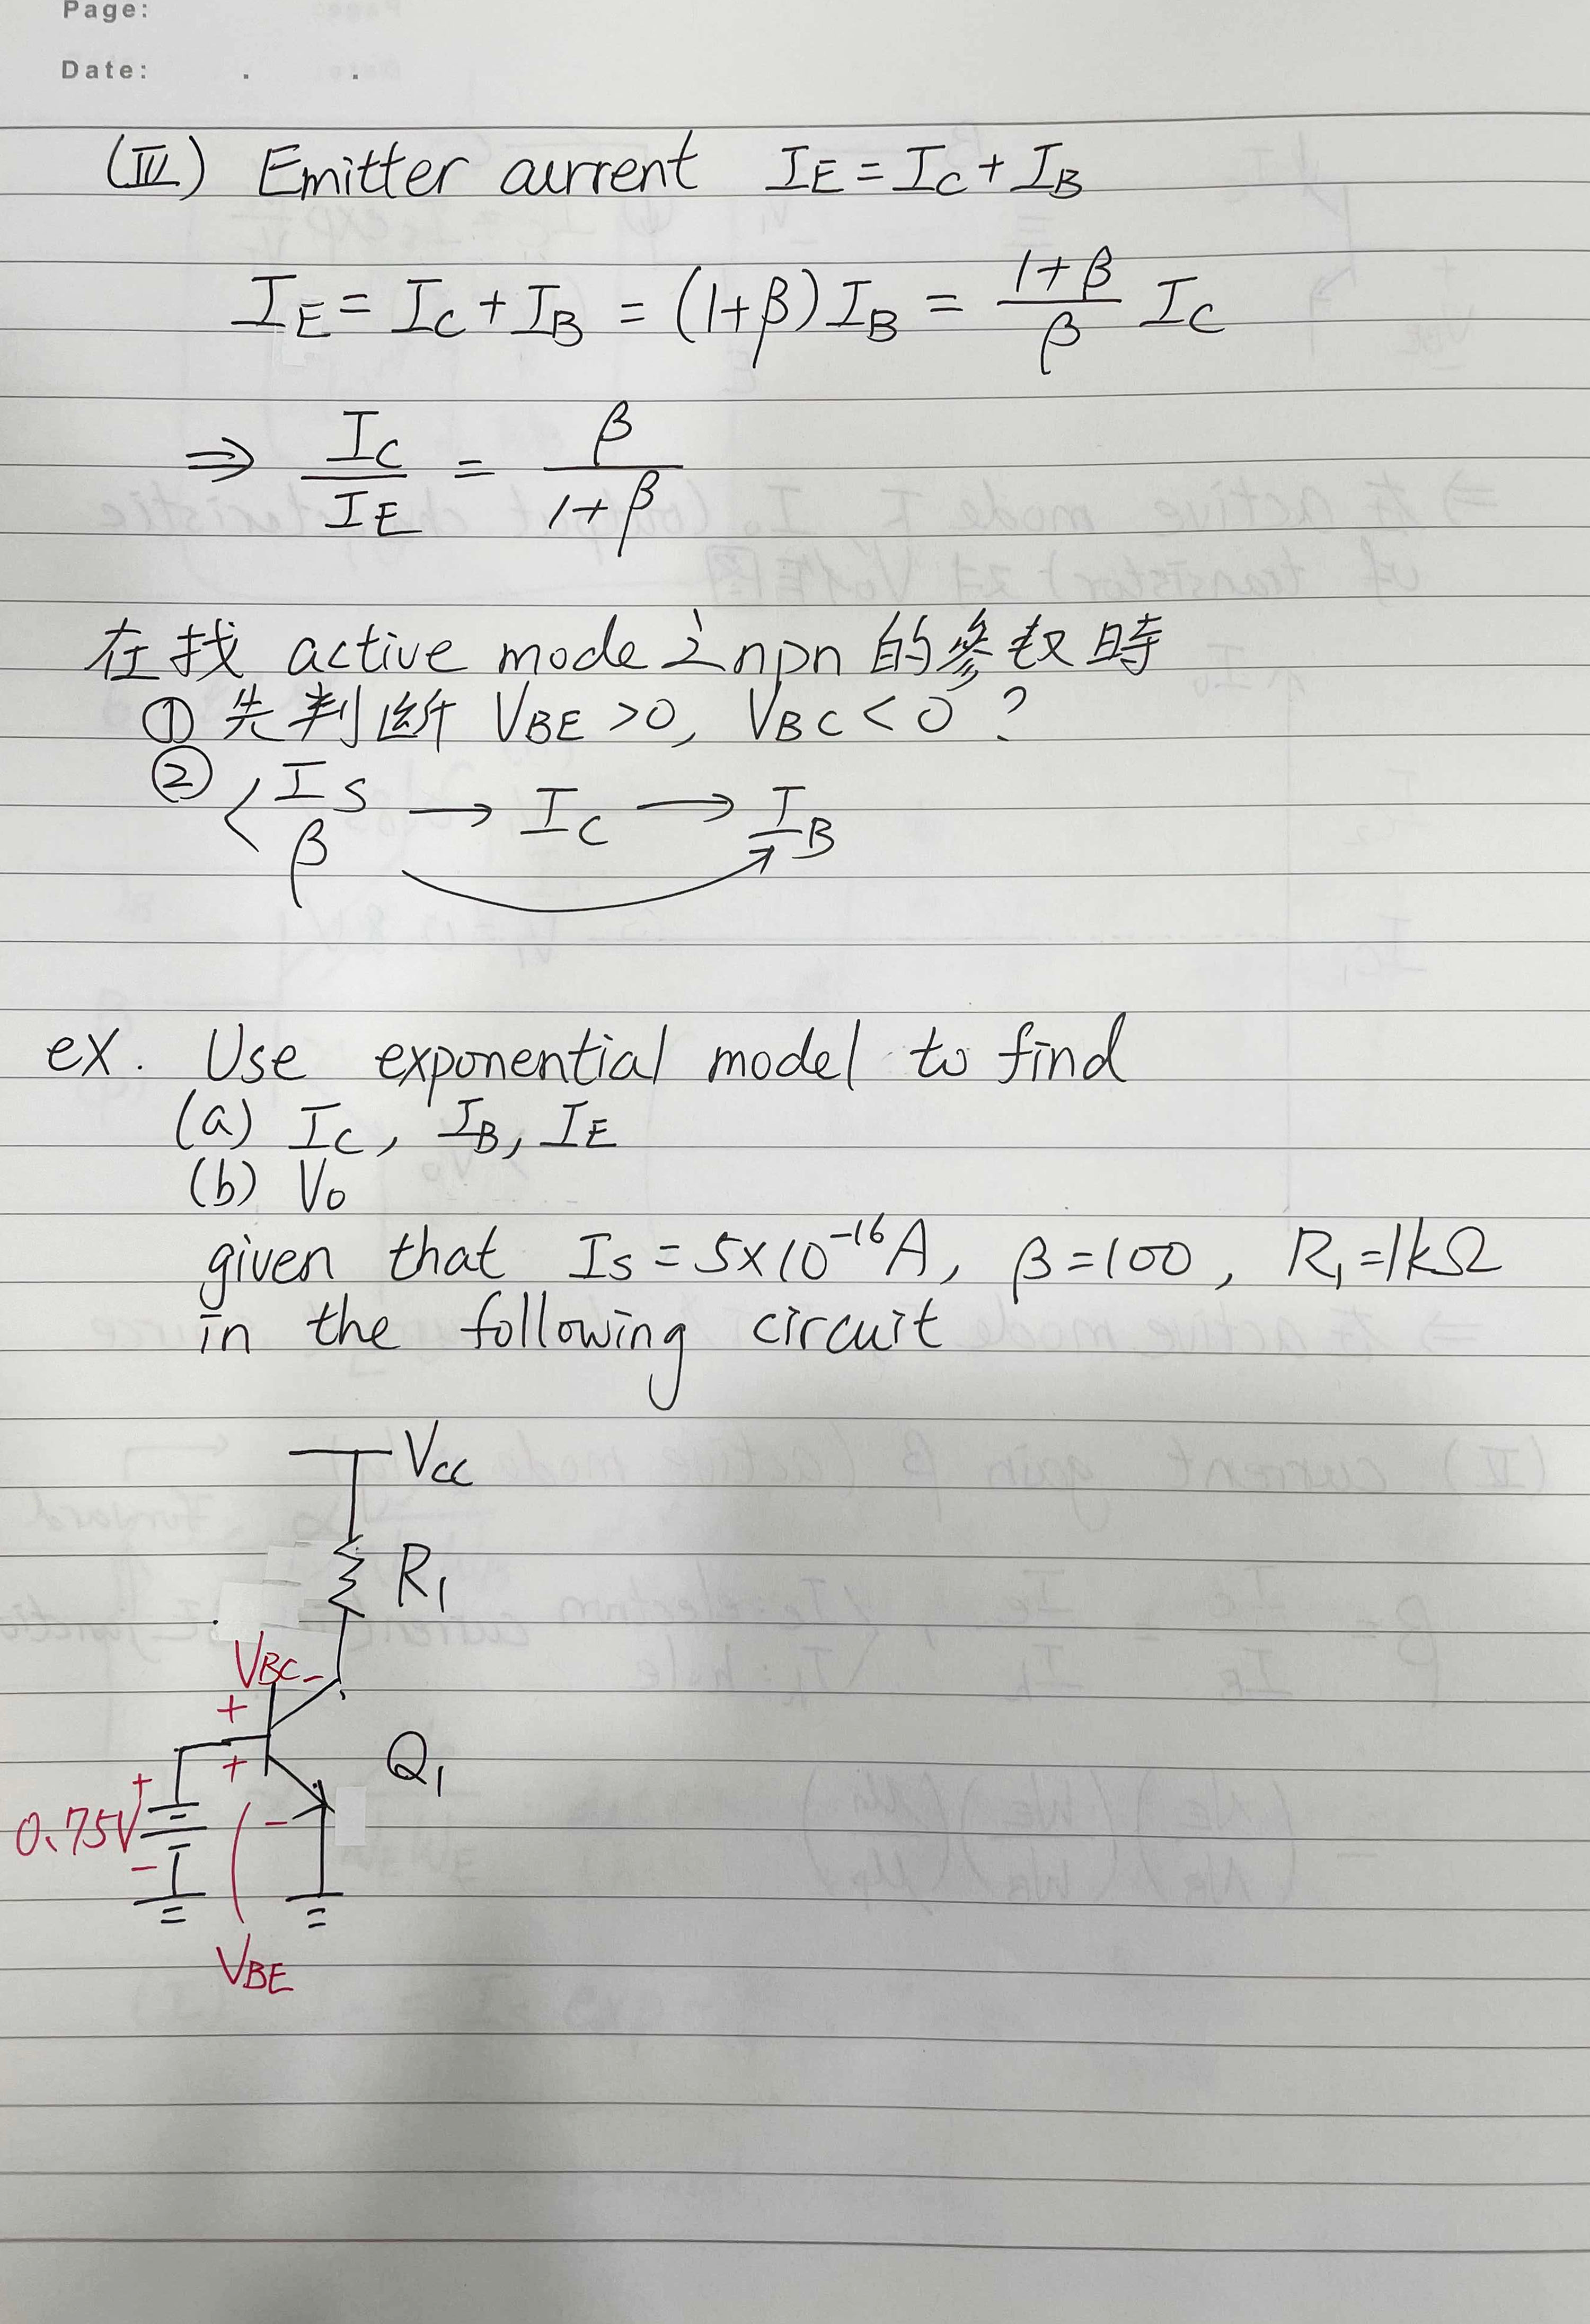 Page:
Date: . .
(Ⅳ) Emitter current IE = IC + IB
IE = IC + IB = (1+β) IB = (1+β)/β IC
⇒ IC/IE = β/(1+β)
在找 active mode 之 npn 的參数時
① 先判断 VBE >0, VBC < 0 ?
② < IS → IC → IB
β
ex. Use exponential model to find
(a) IC, IB, IE
(b) Vo
given that Is = 5×10⁻¹⁶A, β=100, R1=1kΩ
in the following circuit
VCC
R1
VBC -
+
+
Q1
+
0.75V
-
-
VBE